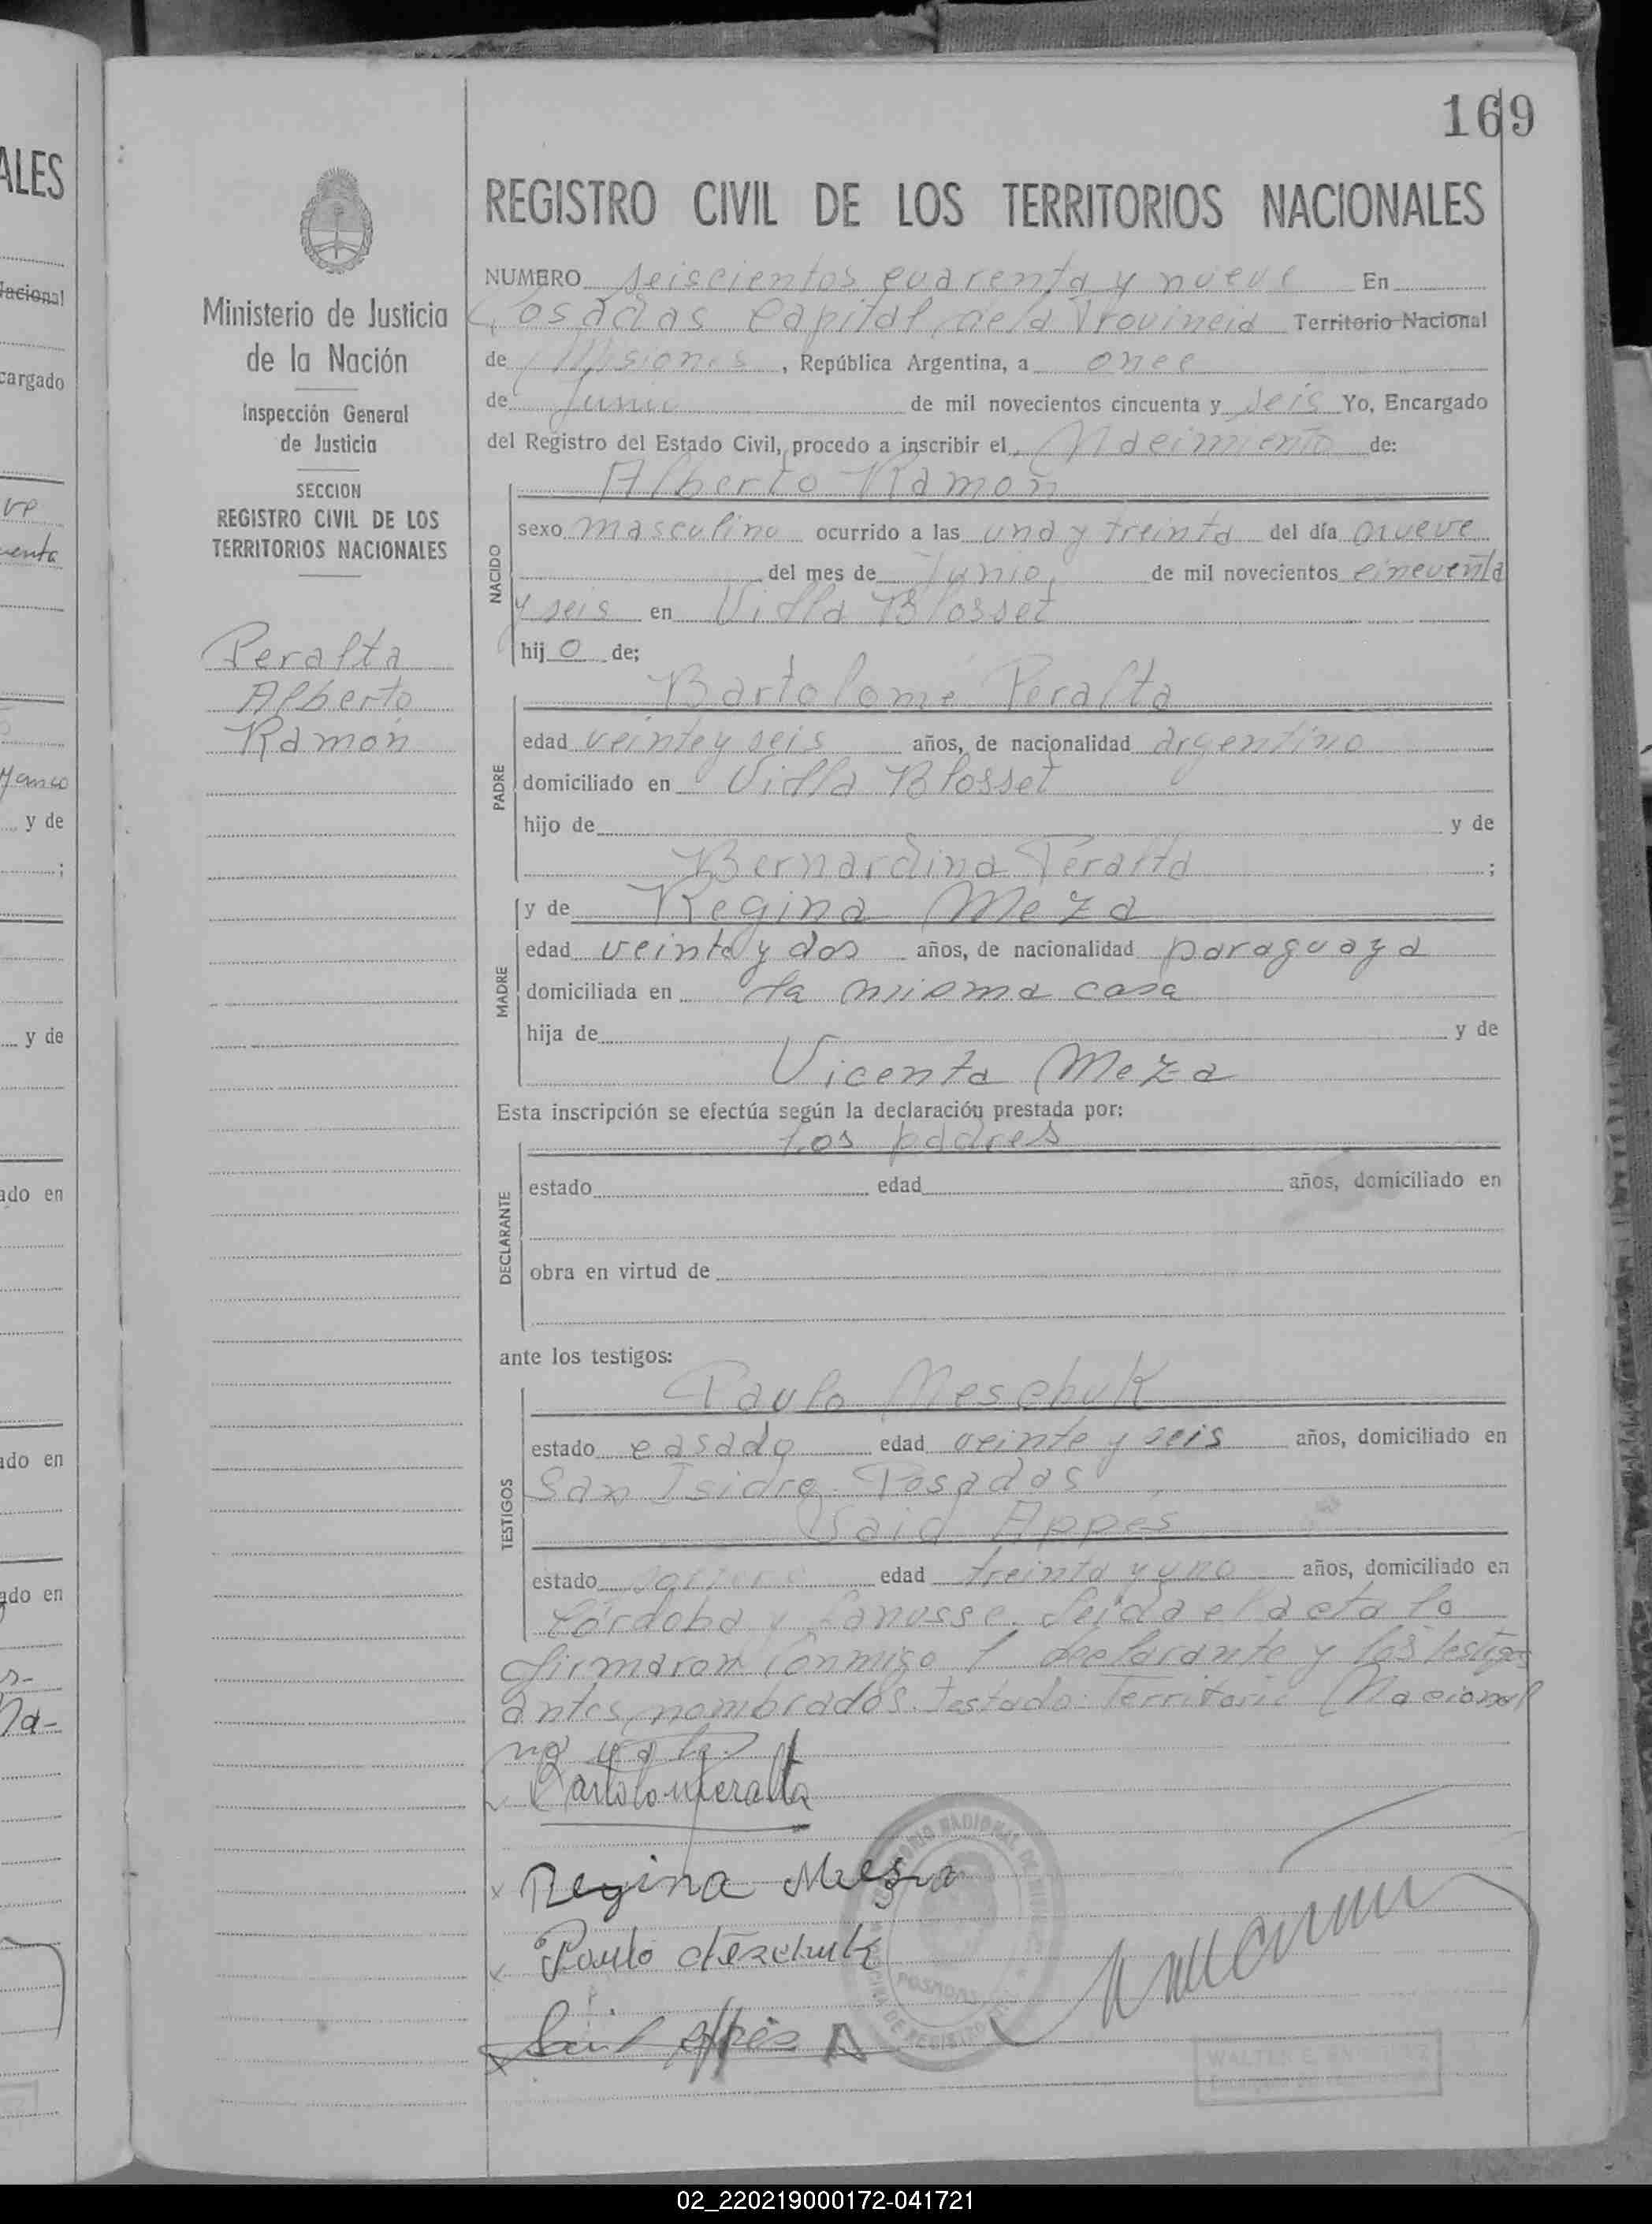 169
REGISTRO CIVIL DE LOS TERRITORIOS NACIONALES
Ministerio de Justicia
de la Nación
Inspección General
de Justicia
SECCION
REGISTRO CIVIL DE LOS
TERRITORIOS NACIONALES
Peralta
Alberto
Ramón
NUMERO seiscientos cuarenta y nueve En
Posadas Capital de la Provincia Territorio Nacional
de Misiones, República Argentina, a once
de Junio de mil novecientos cincuenta y seis Yo, Encargado
del Registro del Estado Civil, procedo a inscribir el Nacimiento de:
Alberto Ramón
NACIDO
sexo masculino ocurrido a las una y treinta del día nueve
del mes de Junio de mil novecientos cincuenta
y seis en Villa Blosset
hijo de;
Bartolomé Peralta
PADRE
edad veinte y seis años, de nacionalidad argentino
domiciliado en Villa Blosset
hijo de y de
Bernardina Peralta ;
y de Regina Meza
MADRE
edad veinte y dos años, de nacionalidad paraguaya
domiciliada en la misma casa
hija de y de
Vicenta Meza
Esta inscripción se efectúa según la declaración prestada por:
Los padres
DECLARANTE
estado edad años, domiciliado en
obra en virtud de
ante los testigos:
Paulo Meschuk
TESTIGOS
estado casado edad veinte y seis años, domiciliado en
San Isidro Posadas
Said Appes
estado edad treinta y uno años, domiciliado en
Córdoba y Lanusse. Leida el acta la
firmaron conmigo l declarante y los testigos
antes nombrados. Testado: Territorio Nacional
no vale
Bartolo Peralta
x Regina Mesa
x Paulo Meschuk
Said Appés
POSADAS
02_220219000172-041721